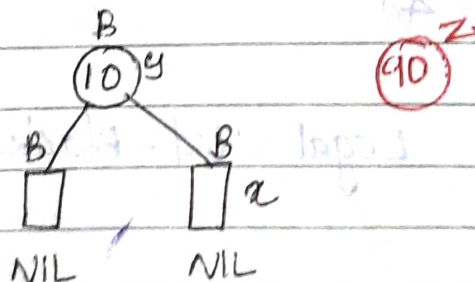 B
10 y
Z
90
B
B
x
NIL
NIL